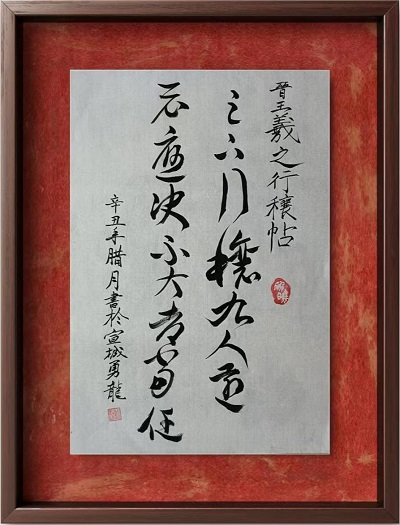 晉王羲之行穰帖
足下行穰九人還
示應決不大都當佳
辛丑年腊月書於宣城勇龍